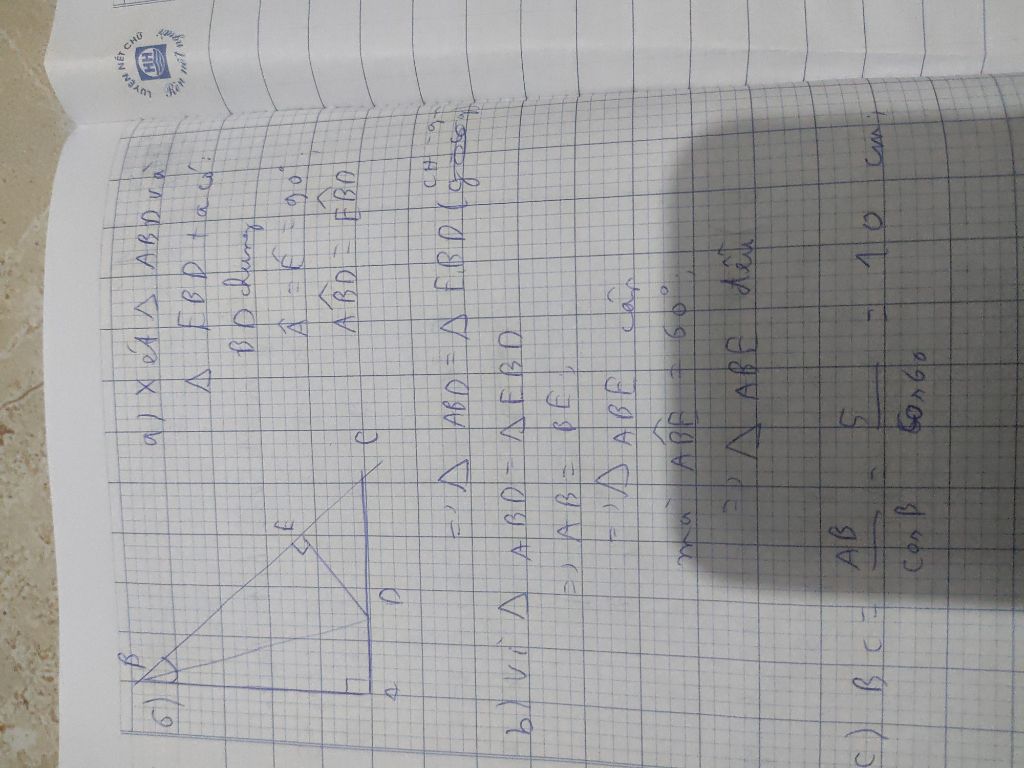 LUYỆN NÉT CHỮ
HH
6)
B
E
C
D
A
a) Xét Δ ABD và
Δ EBD ta có:
BD chung
Â = Ê = 90°
ABD = EBD
=> Δ ABD = Δ EBD (
CH -
b) Vì Δ ABD = Δ EBD
=> AB = BE,
=> Δ ABE cân
mà ABE = 60°,
=> Δ ABE đều
c) BC = AB / cos B = 5 / cos 60 = 10 cm,